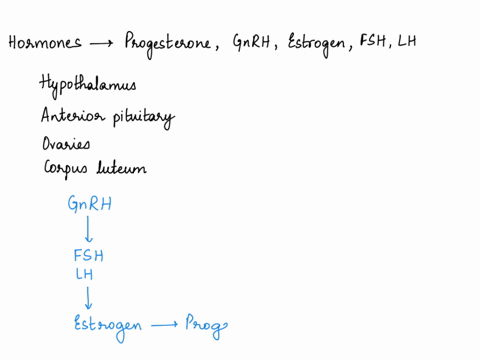 Hormones → Progesterone, GnRH, Estrogen, FSH, LH
Hypothalamus
Anterior pituitary
Ovaries
Corpus luteum
GnRH
↓
FSH
LH
↓
Estrogen → Prog